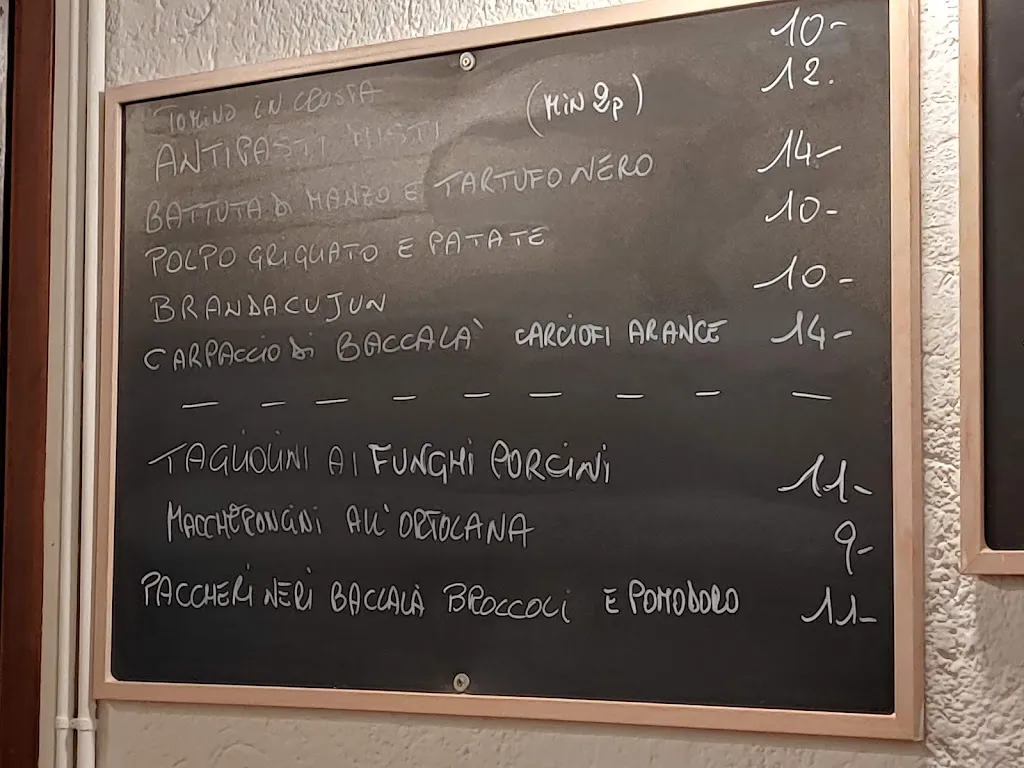 TOMINO IN CROSTA 10-
ANTIPASTI MISTI (MIN 2p) 12.
BATTUTA di MANZO E TARTUFO NERO 14-
POLPO GRIGLIATO E PATATE 10-
BRANDACUJUN 10-
CARPACCIO di BACCALÀ CARCIOFI ARANCE 14-
— — — — — — — — —
TAGLIOLINI AI FUNGHI PORCINI 11-
MACCHERONCINI ALL'ORTOLANA 9-
PACCHERI NERI BACCALÀ BROCCOLI E POMODORO 11-